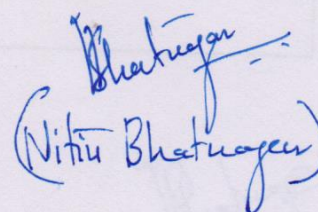 NBhatnagar
(Nitin Bhatnagar)